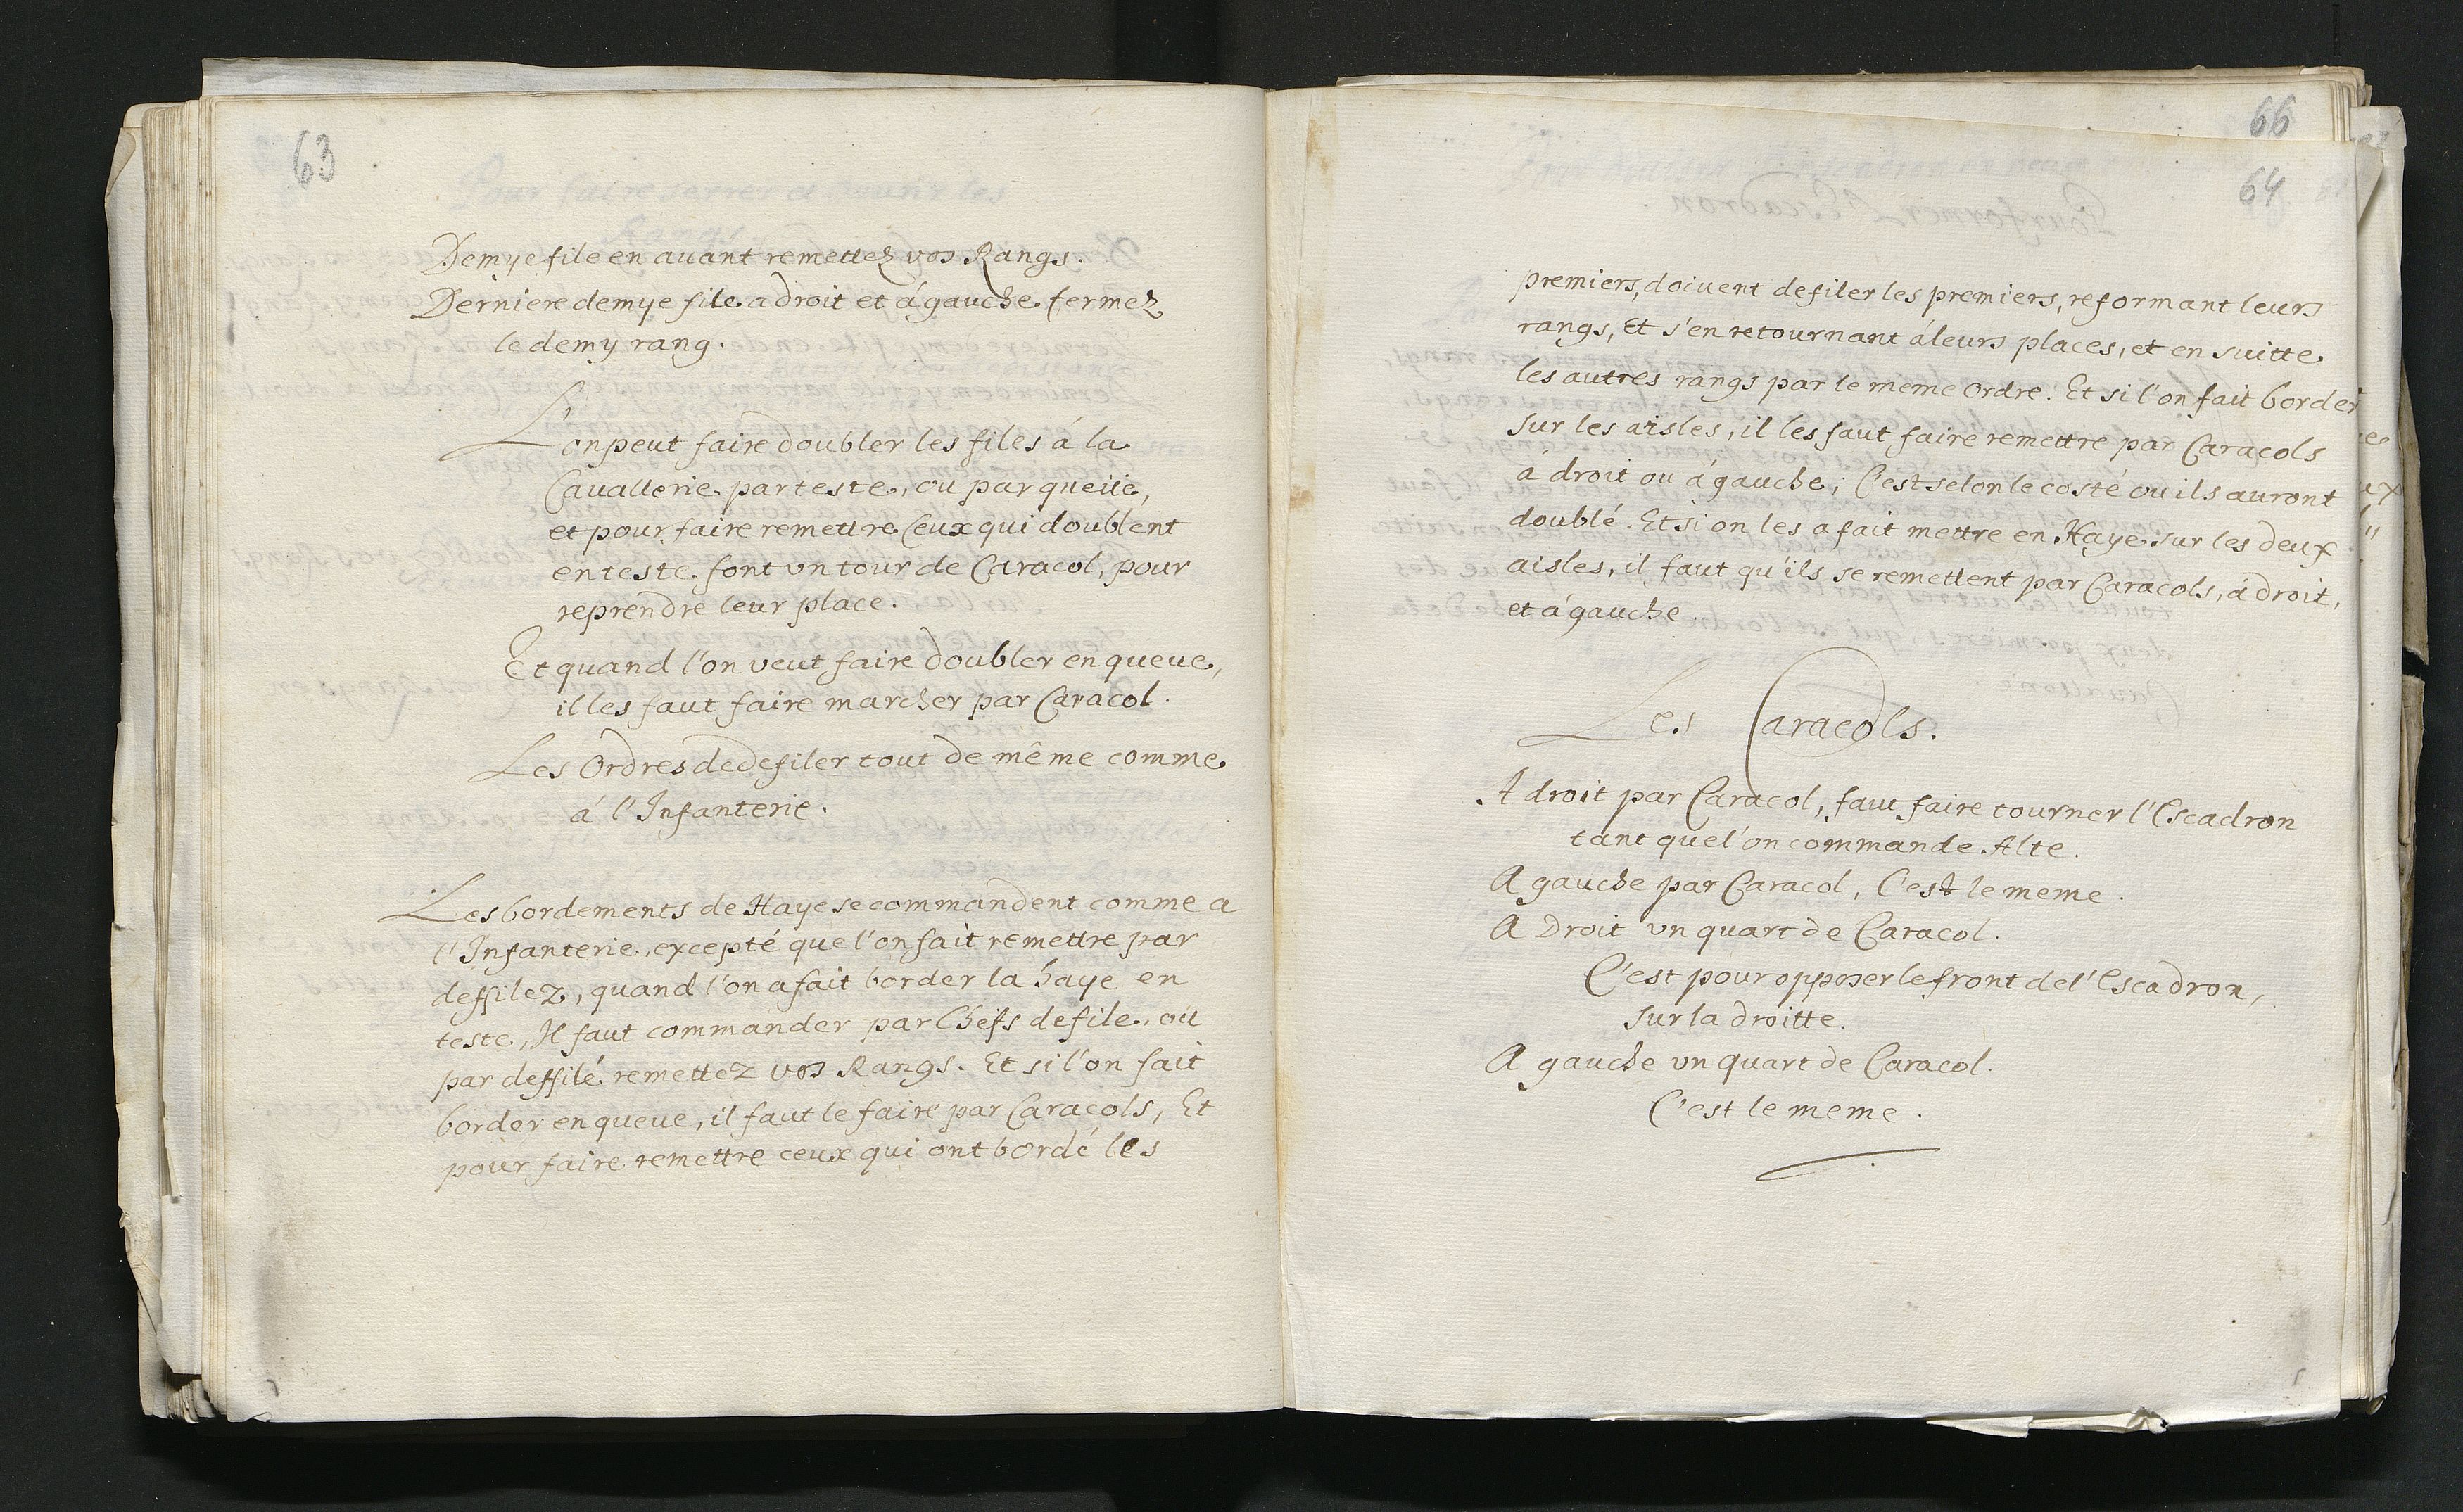 63
Demye file en auant remettez vos Rangs.
Derniere demye file a droit et á gauche fermez
le demy rang.
L'on peut faire doubler les files á la
Cauallerie par teste, ou par queüe,
et pour faire remettre Ceux qui doublent
en teste font vn tour de Caracol, pour
reprendre leur place.
Et quand l'on veut faire doubler en queue,
il les faut faire marcher par Caracol.
Les Ordres de defiler tout de même comme
á l'Infanterie.
Les bordements de Haye se commandent comme a
l'Infanterie, excepté que l'on fait remettre par
deffilez, quand l'on a fait border la haye en
teste, Il faut commander par Chefs de file, ou
par deffilé remettez vos Rangs. Et si l'on fait
border en queue, il faut le faire par Caracols, Et
pour faire remettre ceux qui ont bordé les
66
64
premiers, doiuent defiler les premiers, reformant leurs
rangs, Et s'en retournant á leurs places, et en suitte
les autres rangs par le meme Ordre. Et si l'on fait border
sur les aisles, il les faut faire remettre par Caracols
á droit ou á gauche; C'est selon le costé ou ils auront
doublé. Et si on les a fait mettre en Haye sur les deux
aisles, il faut qu'ils se remettent par Caracols, á droit,
et á gauche.
Les Caracols.
A droit par Caracol, faut faire tourner l'Escadron
tant que l'on commande Alte.
A gauche par Caracol, C'est le meme.
A Droit vn quart de Caracol.
C'est pour opposer le front de l'Escadron,
sur la droitte.
A gauche vn quart de Caracol.
C'est le meme.